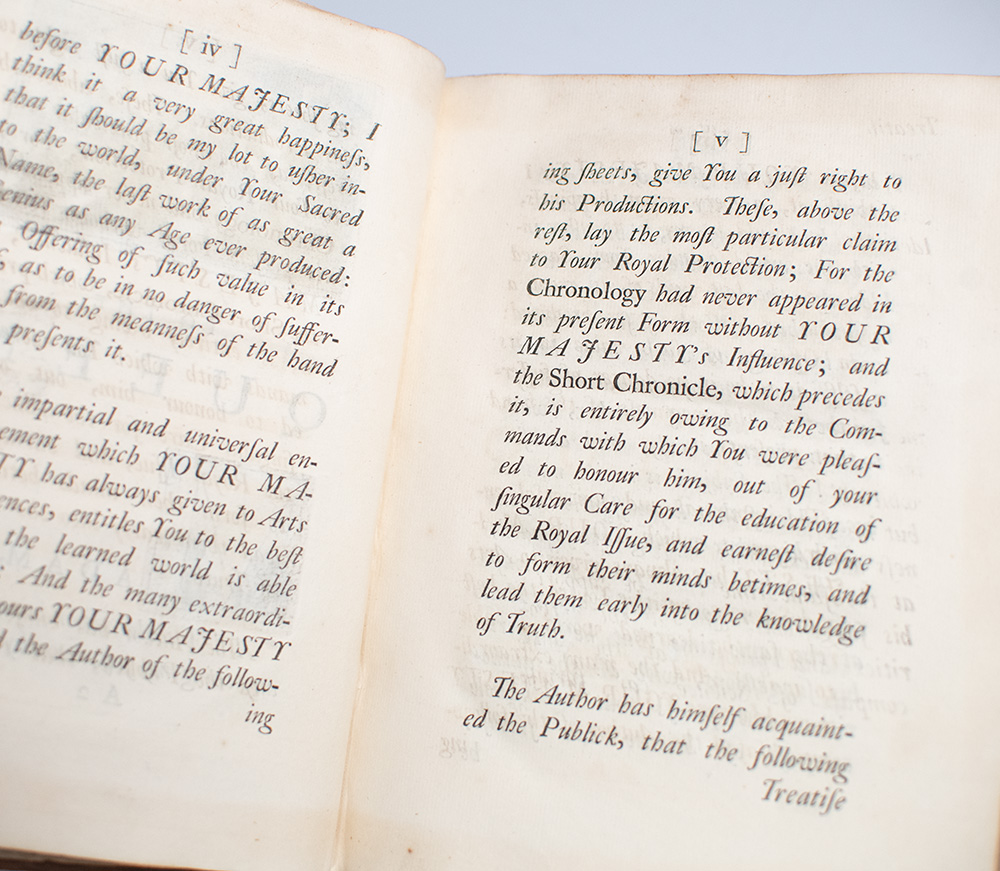 [ iv ]
before YOUR MAJESTY; I
think it a very great happineſs,
that it ſhould be my lot to uſher in-
to the world, under Your Sacred
Name, the laſt work of as great a
Genius as any Age ever produced:
Offering of ſuch value in its
as to be in no danger of ſuffer-
from the meanneſs of the hand
preſents it.
impartial and univerſal en-
ement which YOUR MA-
TY has always given to Arts
ences, entitles You to the beſt
the learned world is able
: And the many extraordi-
ours YOUR MAJESTY
the Author of the follow-
ing
[ v ]
ing ſheets, give You a juſt right to
his Productions. Theſe, above the
reſt, lay the moſt particular claim
to Your Royal Protection; For the
Chronology had never appeared in
its preſent Form without YOUR
MAJESTY's Influence; and
the Short Chronicle, which precedes
it, is entirely owing to the Com-
mands with which You were pleaſ-
ed to honour him, out of your
ſingular Care for the education of
the Royal Iſſue, and earneſt deſire
to form their minds betimes, and
lead them early into the knowledge
of Truth.
The Author has himſelf acquaint-
ed the Publick, that the following
Treatiſe